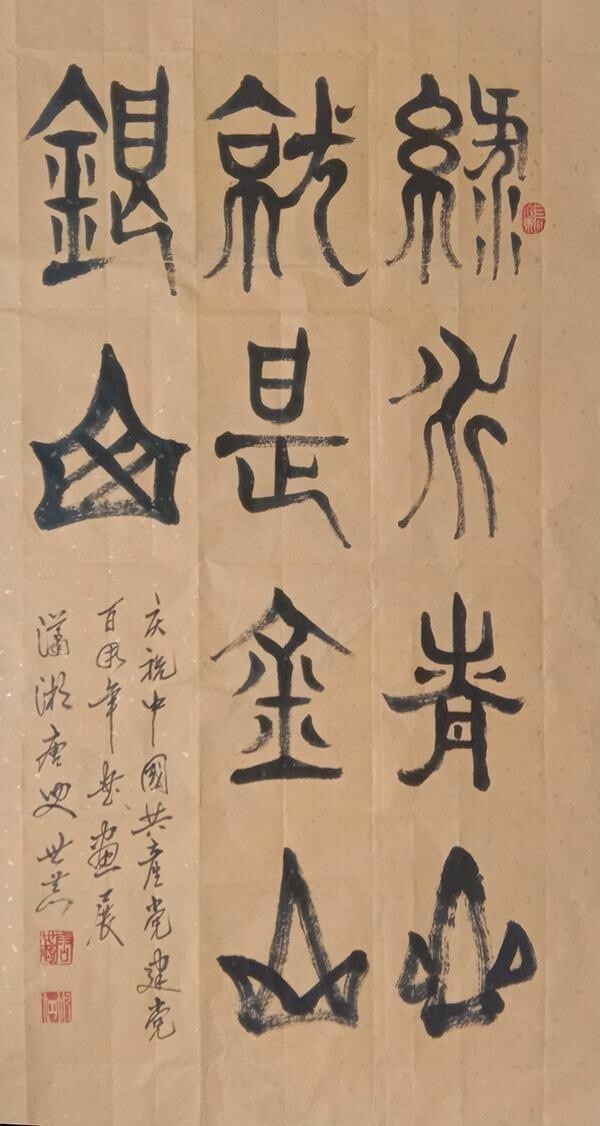 綠水青山
就是金山
銀山
庆祝中國共產党建党
百周年书畫展
潇湘唐 世